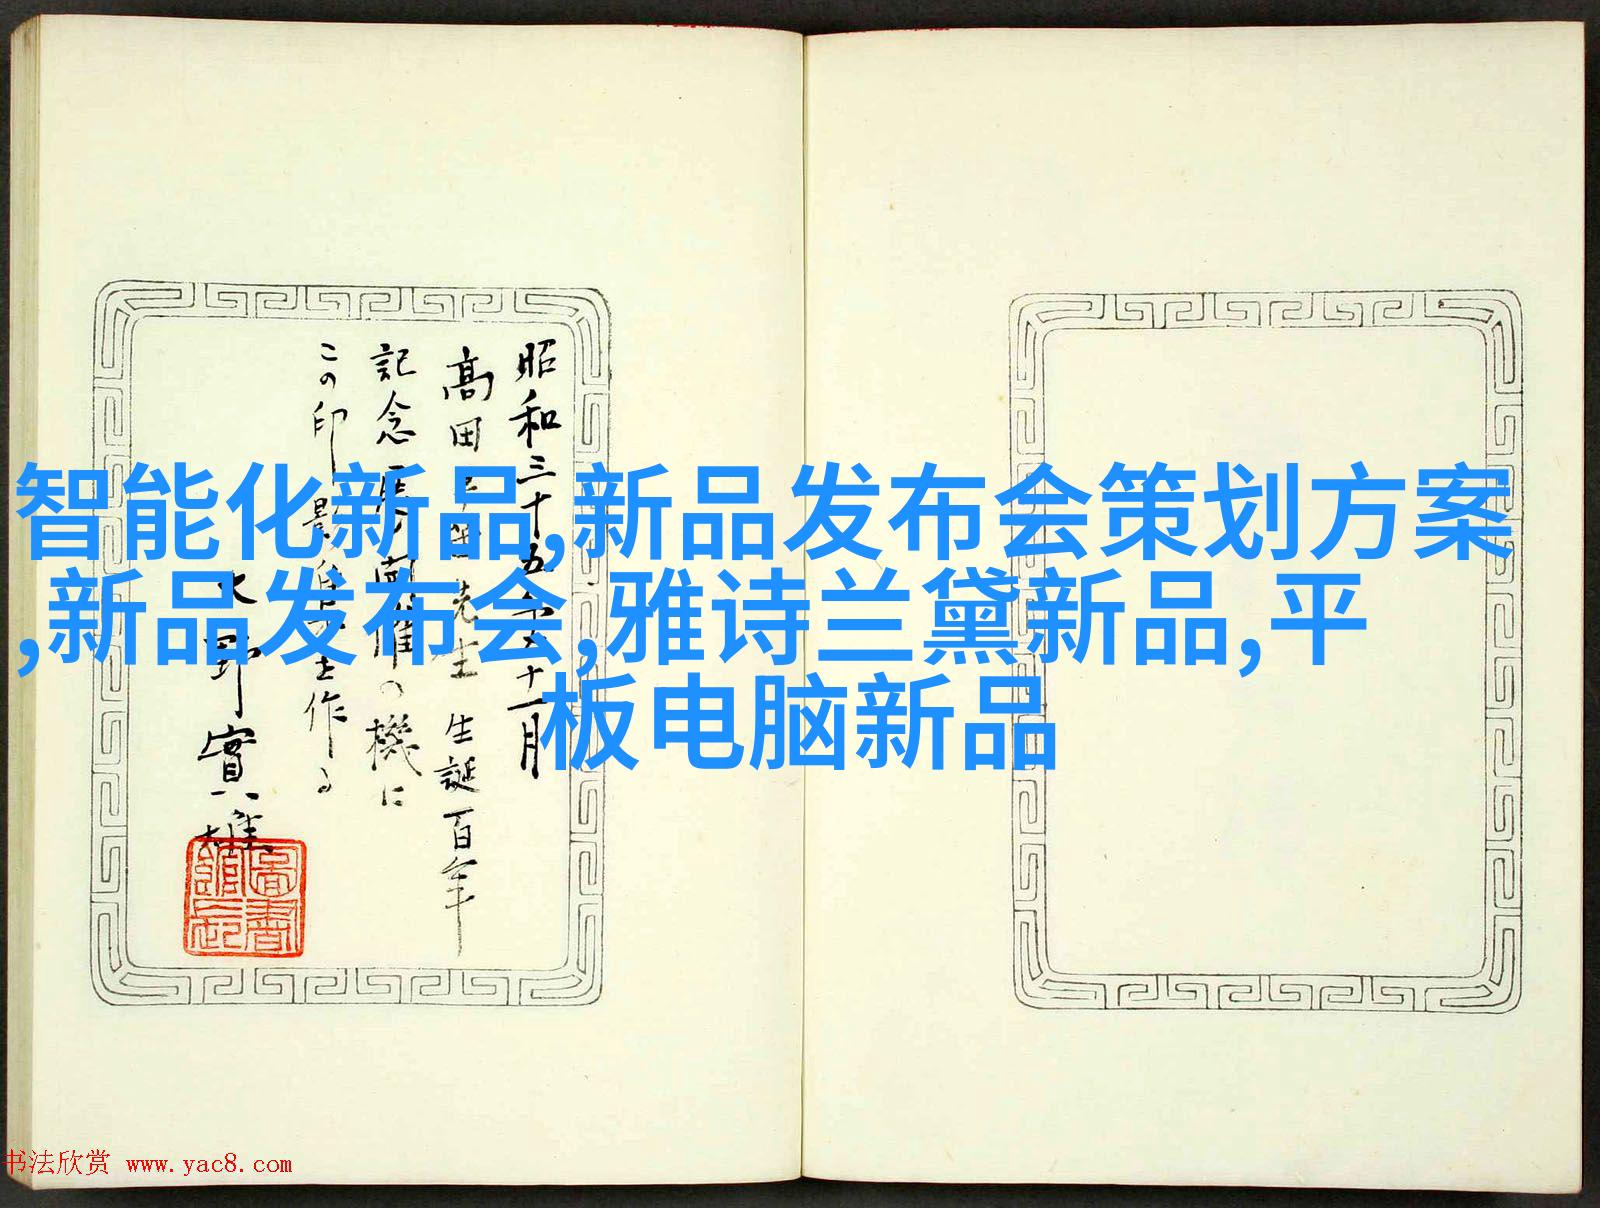 智能化新品,新品发布会策划方案
,新品发布会,雅诗兰黛新品,平
板电脑新品
昭和三十五年十一月
高田 先生 生誕百年
記念 開催の機に
この印 作る
水野實雄
圖書館長
书法欣赏 www.yac8.com